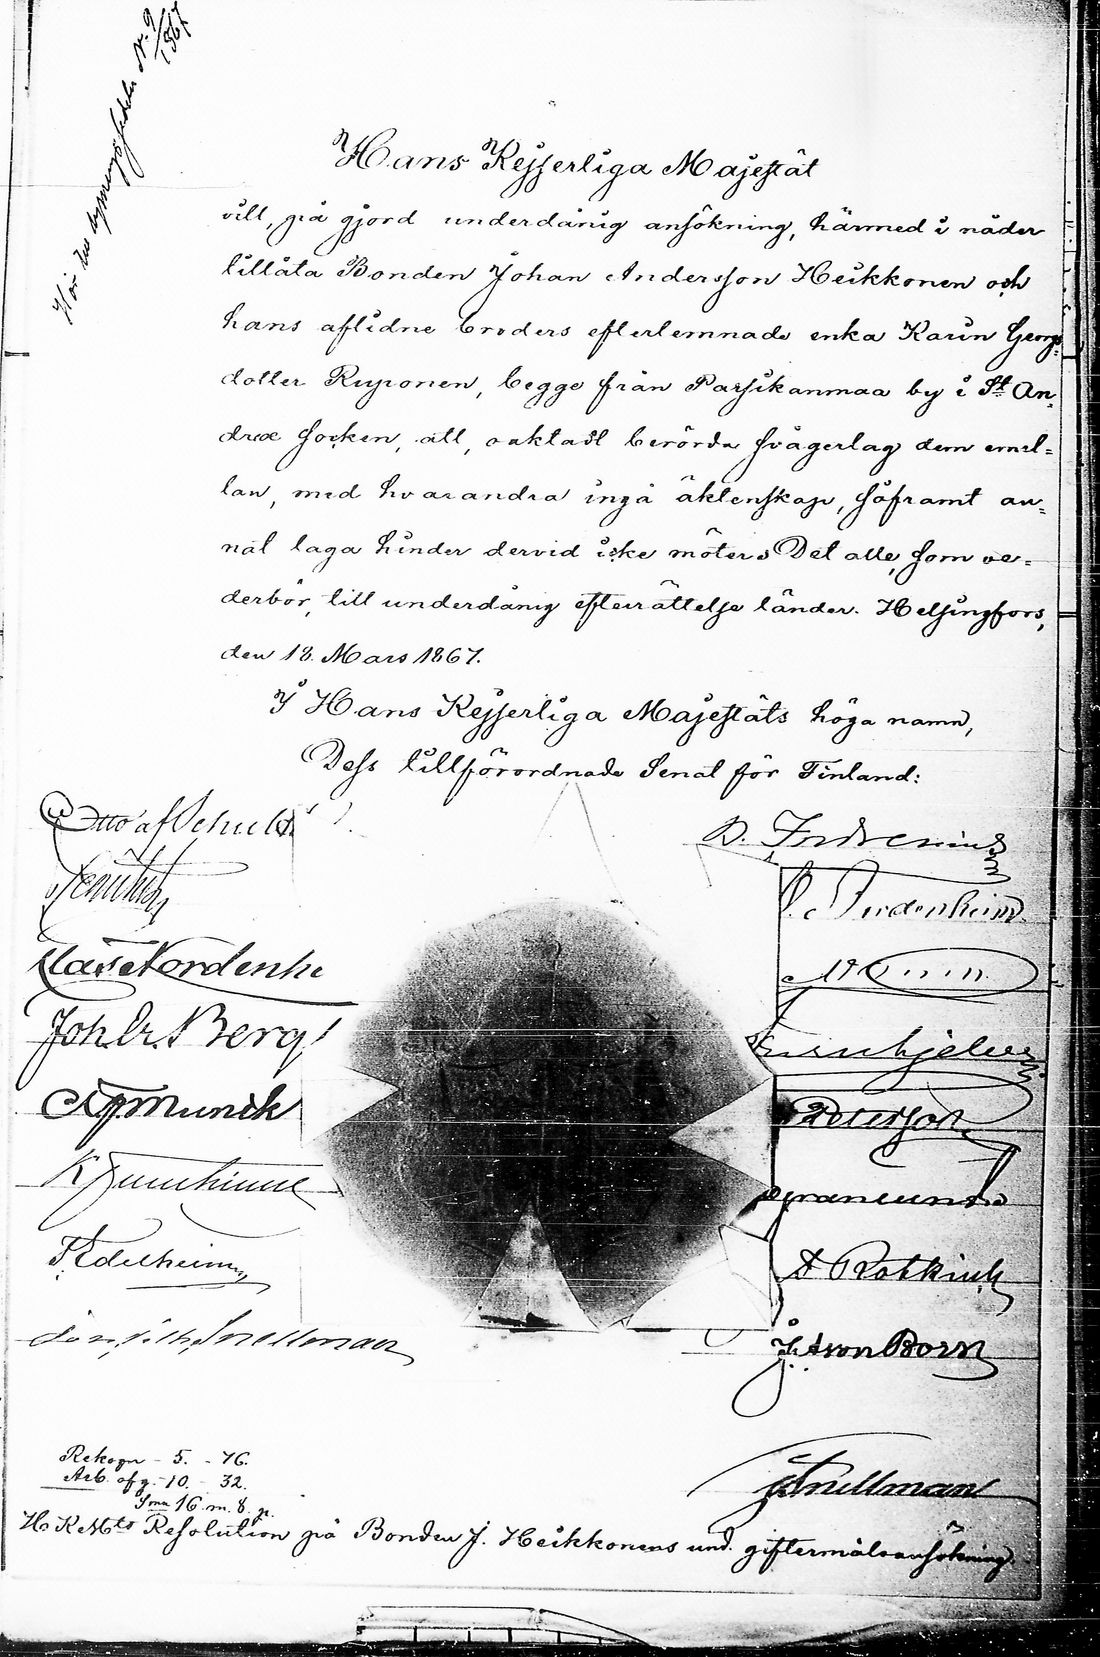 Hör till lysningssedeln N. 9/1867
Hans Kejserliga Majestät
vill, på gjord underdånig ansökning, härmed i nåder
tillåta Bonden Johan Andersson Heikkonen och
hans aflidne broders efterlemnade enka Karin Georgs=
dotter Ruponen, begge från Parsikanmaa by i St An=
dreæ socken, att, oaktadt berörda svågerlag dem emel=
lan, med hvarandra ingå äktenskap, såframt an=
nat laga hinder dervid icke möter. Det alle, som ve=
derbör, till underdånig efterrättelse länder. Helsingfors,
den 18. Mars 1867.
I Hans Kejserliga Majestäts höga namn,
Dess tillförordnade Senat för Finland:
Otto af Schult
D. Indrenius
Nordenhe
Joh. Gr. Berg
Munck
Peterson
F. Edelheim
Rotkirch
Joh. Vilh. Snellman
J. Aron Born
Rekogn - 5. - 76.
Arb. afg. - 10. - 32.
Sma 16. m. 8. p.
Snellman
H. K. Mts Resolution på Bonden J. Heikkonens und. giftermålsansökning.